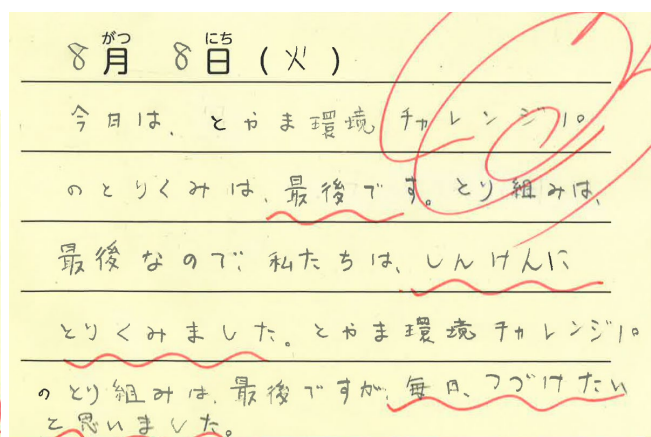 8月8日(火)
がつ にち
今日は、とやま環境チャレンジ10
のとりくみは、最後です。とり組みは、
最後なので、私たちは、しんけんに
とりくみました。とやま環境チャレンジ10
のとり組みは、最後ですが、毎日、つづけたい
と思いました。